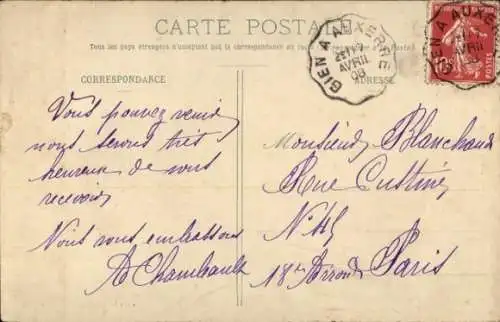 CARTE POSTALE
Tous les pays étrangers n'acceptent pas la correspondance au recto
CORRESPONDANCE
ADRESSE
GIEN A AUXERRE
AVRIL
08
POSTES
Vous pouvez venir
nous serons très
heureux de vous
recevoir
Nous vous embrassons
A Chambault
Monsieur Blanchard
Rue Custine
N. 45
18e Arrond. Paris